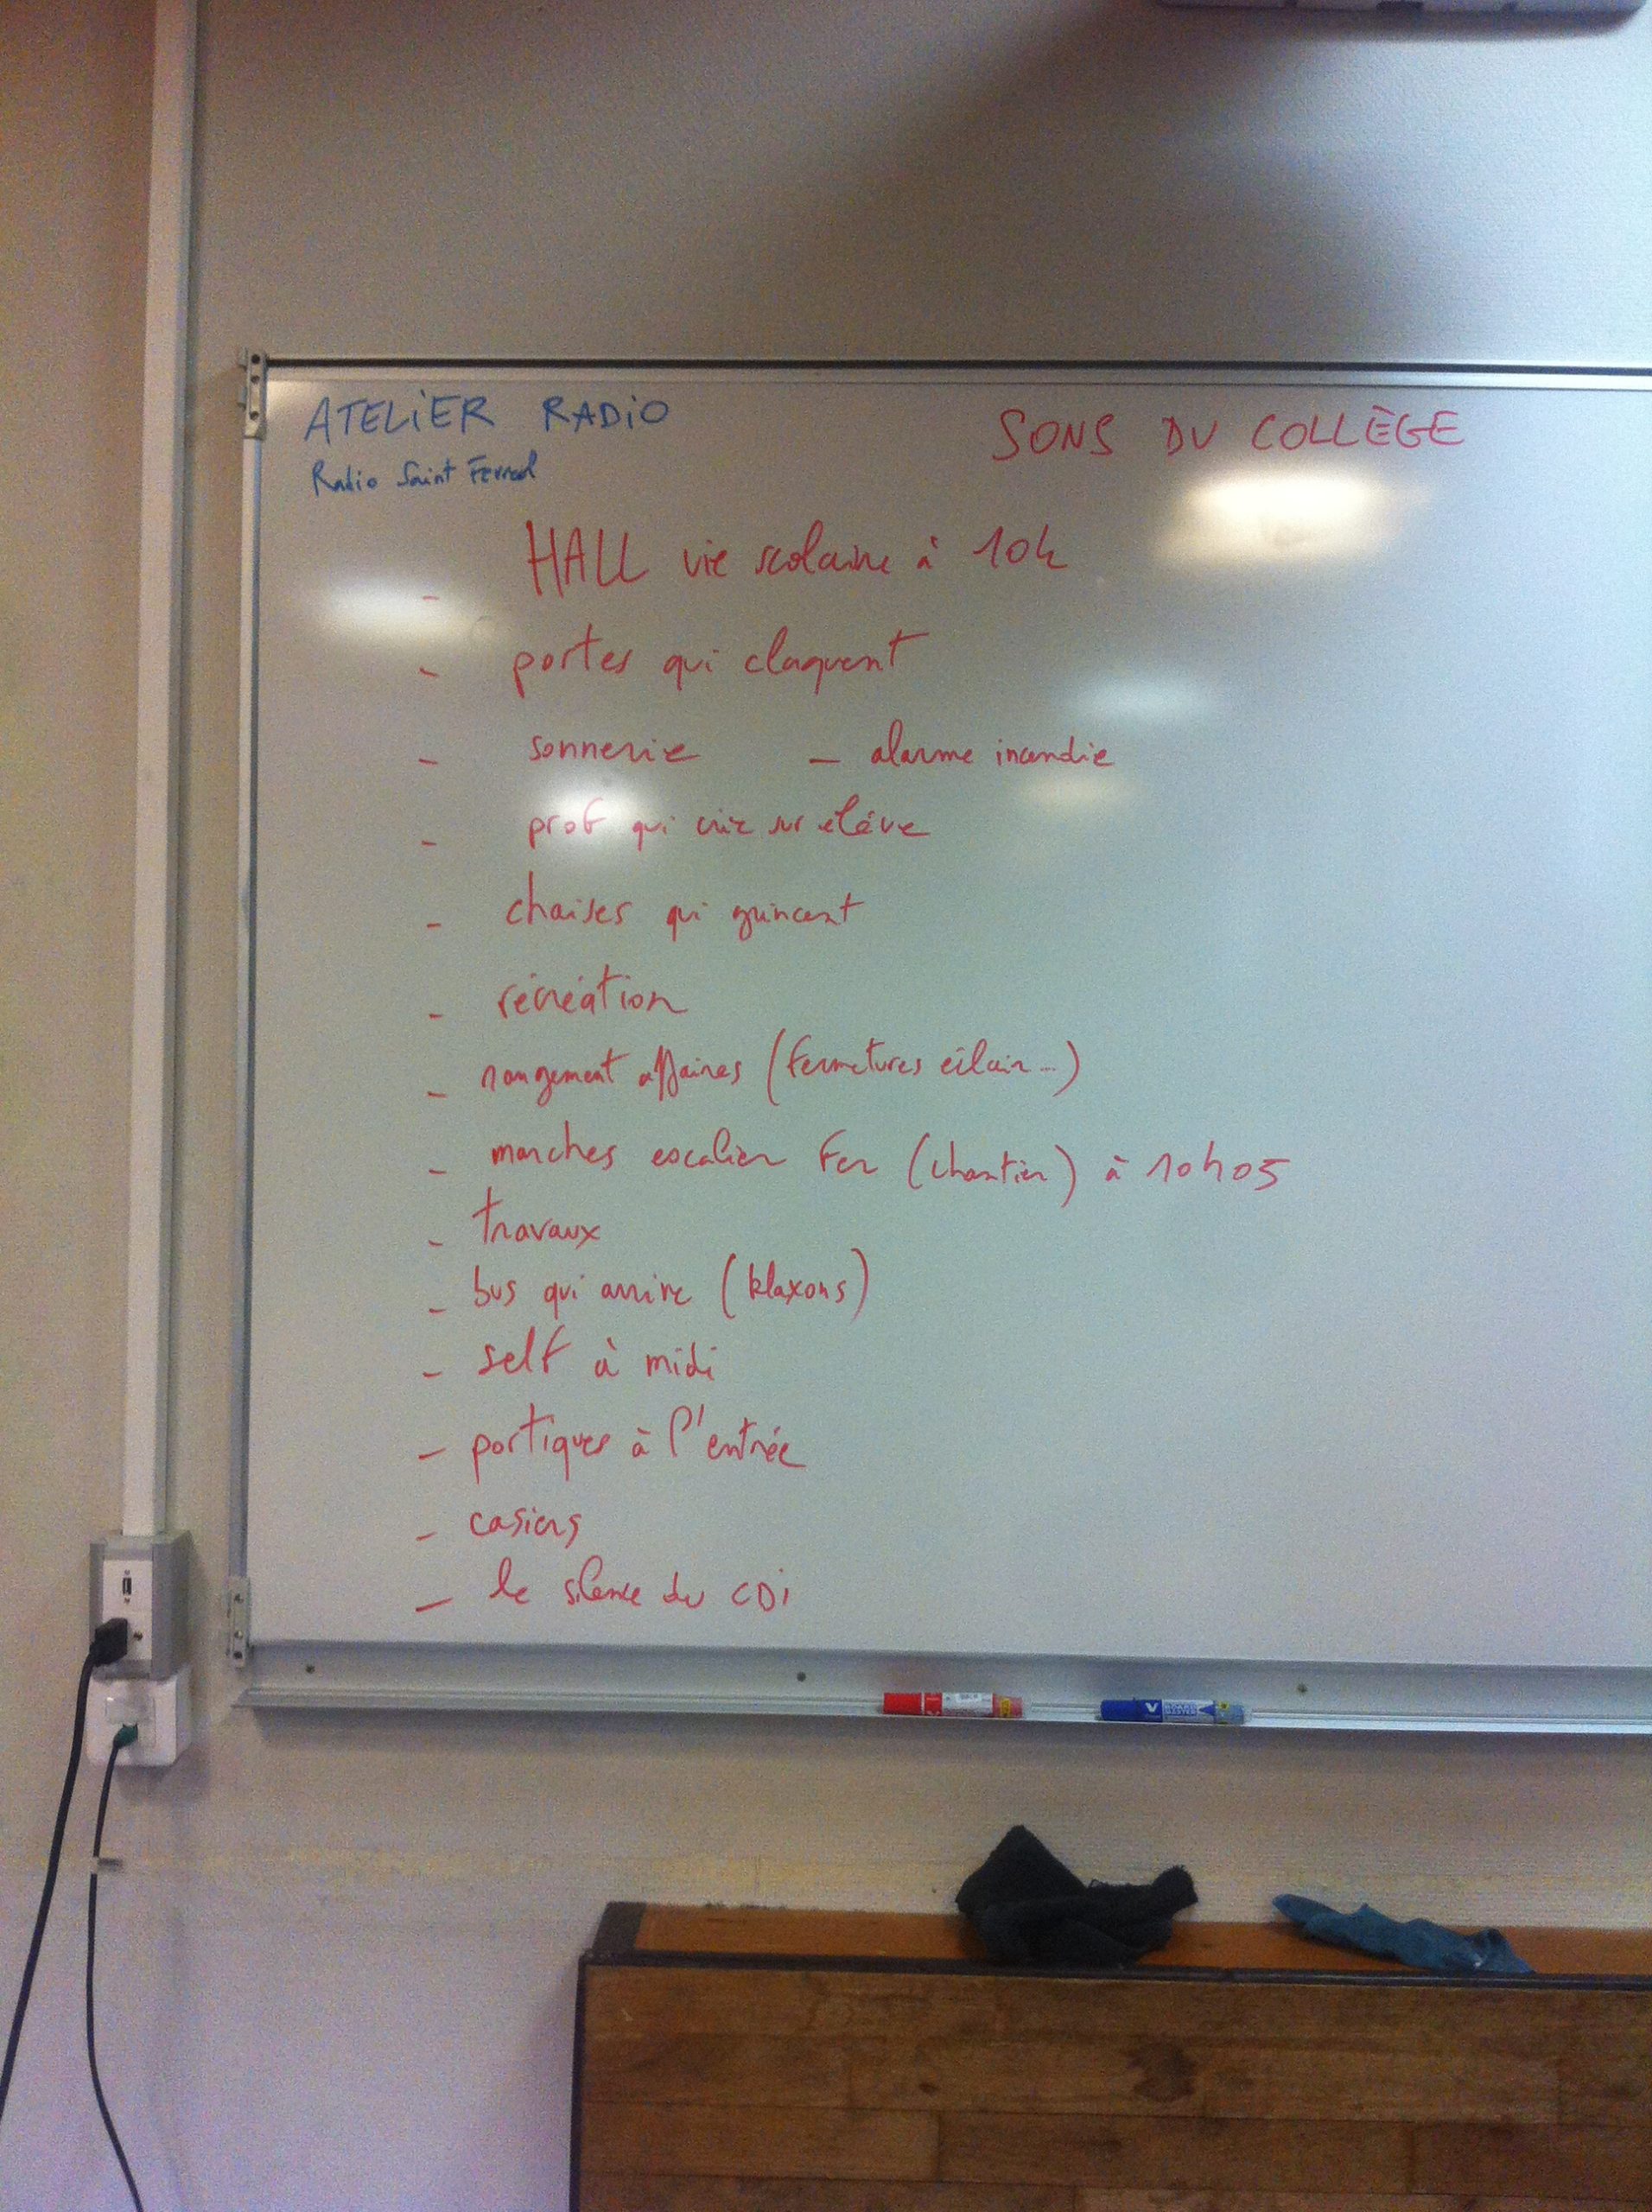 ATELiER RADiO
SONS DU COLLÈGE
Radio Saint Ferreol
- HALL vie scolaire à 10h
- portes qui claquent
- sonnerie - alarme incendie
- prof qui crie sur élève
- chaises qui grincent
- récréation
- rangement affaires (fermetures éclair...)
- marches escalier fer (chantier) à 10h05
- travaux
- bus qui arrive (klaxons)
- self à midi
- portiques à l'entrée
- casiers
- le silence du CDi